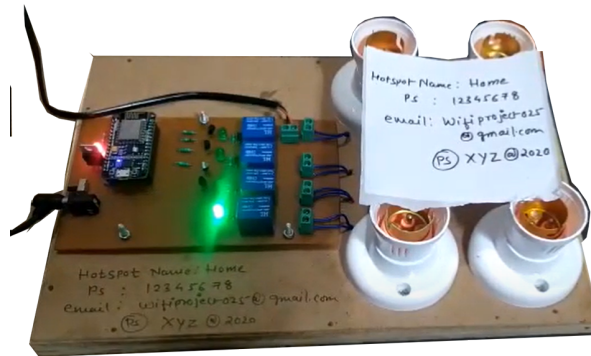 Hotspot Name: Home
Ps : 12345678
email: Wifiproject025
@gmail.com
Ps XYZ@2020
Hotspot Name: Home
Ps : 12345678
email: Wifiproject025@gmail.com
Ps XYZ@2020